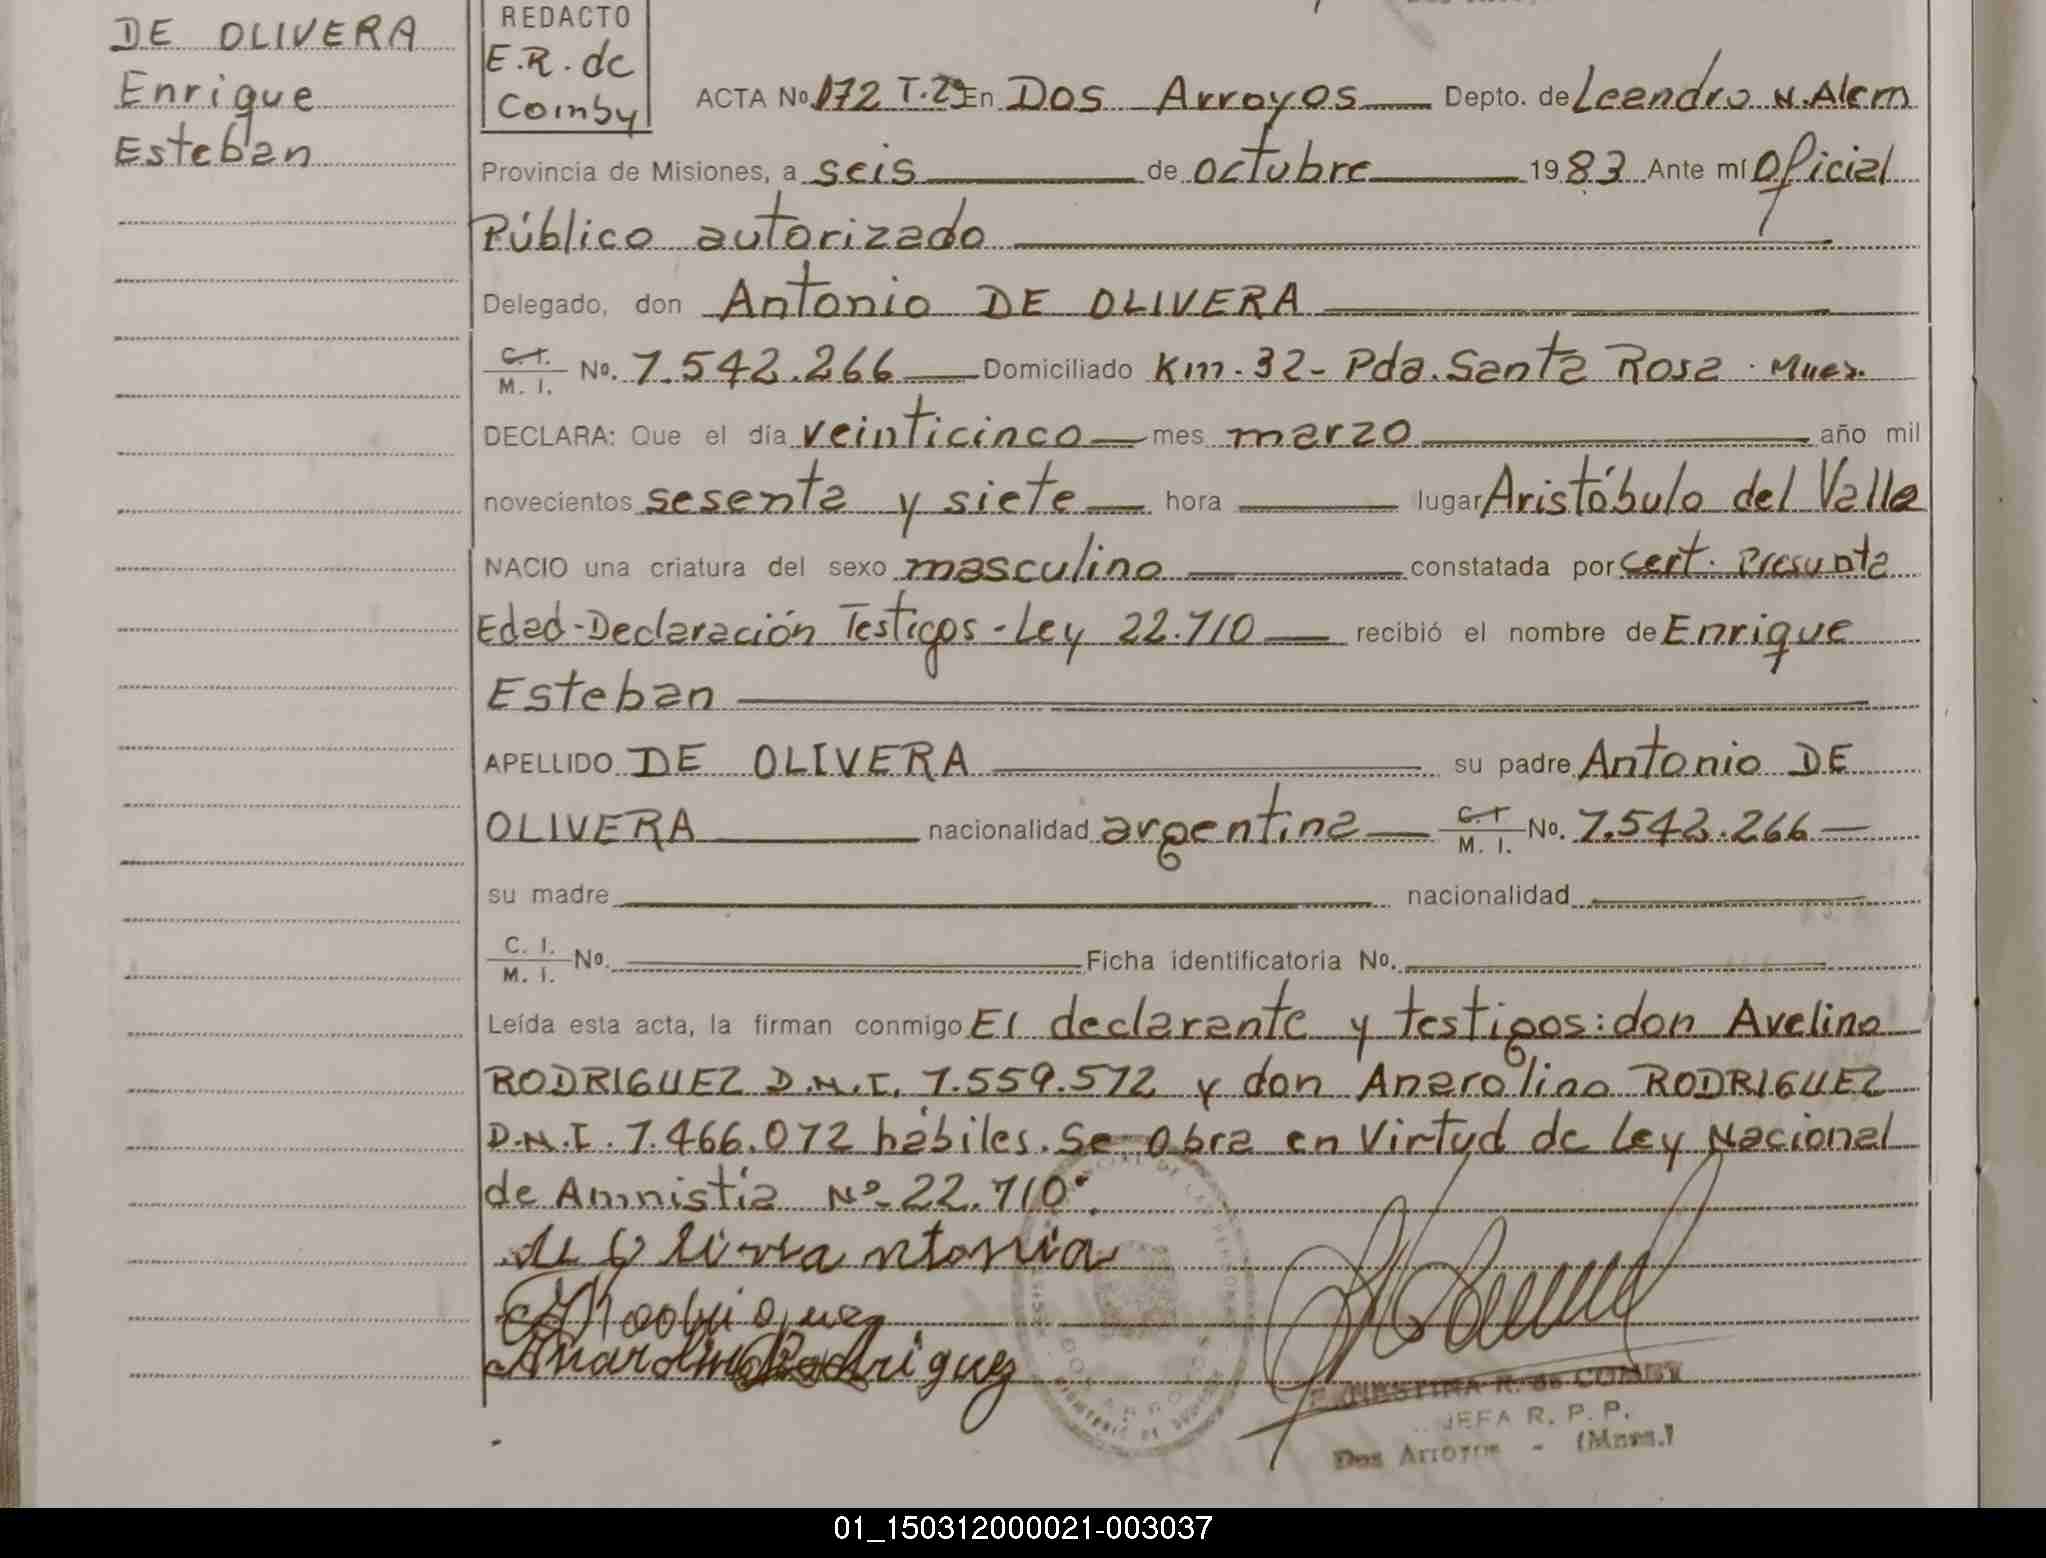 DE OLIVERA
Enrique
Esteban
REDACTO
E.R. de
Comby
ACTA No. 172 T.2º En Dos Arroyos Depto. de Leandro N. Alem
Provincia de Misiones, a seis de octubre 1983 Ante mí Oficial
Público autorizado
Delegado, don Antonio DE OLIVERA
C. I. M. I. No. 7.542.266 Domiciliado Km. 32- Pda. Santa Rosa
DECLARA: Que el día veinticinco mes marzo año mil
novecientos sesenta y siete hora lugar Aristóbulo del Valle
NACIO una criatura del sexo masculino constatada por cert. Presunta
Edad-Declaración Testigos-Ley 22.710 recibió el nombre de Enrique
Esteban
APELLIDO DE OLIVERA su padre Antonio DE
OLIVERA nacionalidad argentina C. I. M. I. No. 7.542.266
su madre nacionalidad
C. I. M. I. No. Ficha identificatoria No.
Leída esta acta, la firman conmigo El declarante y testigos: don Avelino
RODRIGUEZ D.N.I. 7.559.572 y don Anarolino RODRIGUEZ
D.N.I. 7.466.072 hábiles. Se obra en Virtud de Ley Nacional
de Amnistia Nº 22.710.
de Olivera ntonia
Rodriguez
Anarolino Rodriguez
R. de COMBY
JEFA R. P. P.
Dos Arroyos - (Mnes.)
01_150312000021-003037